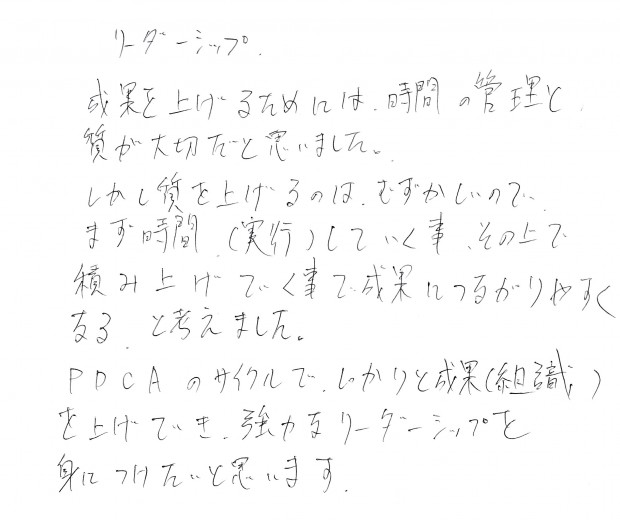 リーダーシップ.
成果を上げるためには、時間の管理と、
質が大切だと思いました。
しかし質を上げるのは、むずかしいので、
まず時間(実行)していく事、その上で
積み上げていく事で成果につながりやすく
なる、と考えました。
PDCAのサイクルで、しっかりと成果(組織)
を上げていき、強力なリーダーシップを
身につけたいと思います.